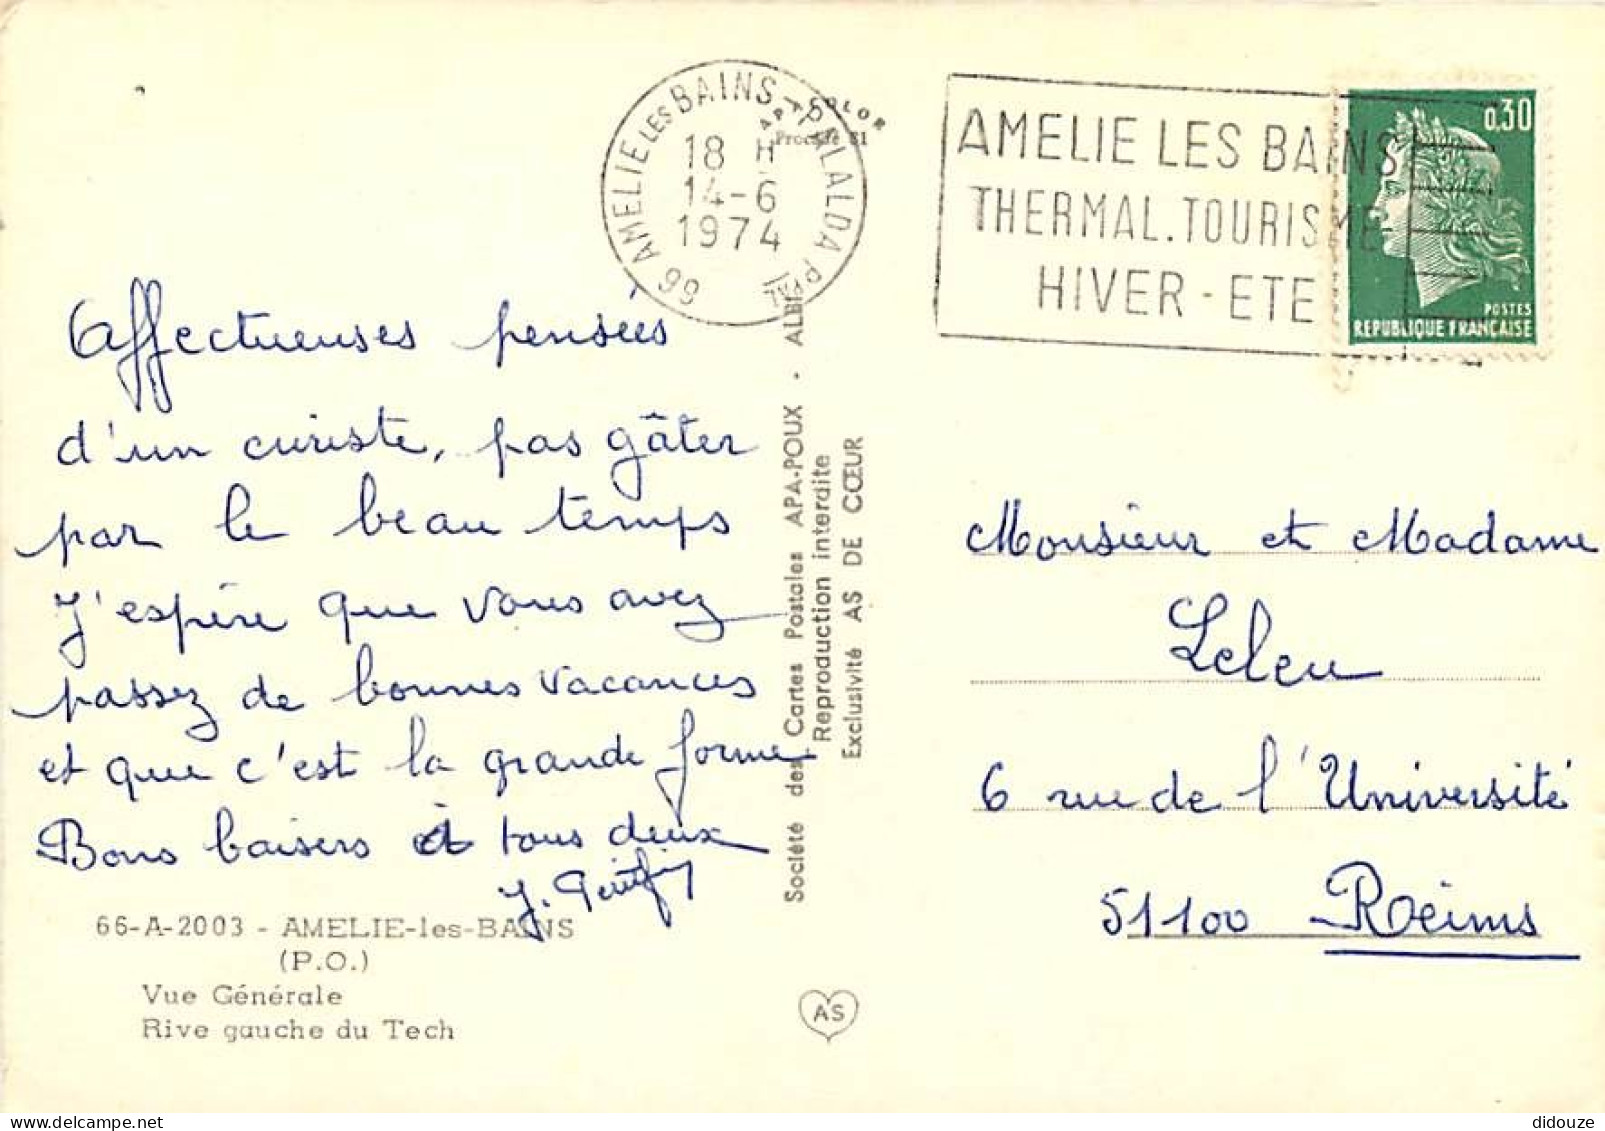 66 AMELIE LES BAINS-PALALDA PPAL
18 H
14-6
1974
APA COLOR
Procédé 61
AMELIE LES BAINS
THERMAL.TOURISME
HIVER - ETE
0,30
POSTES
REPUBLIQUE FRANÇAISE
Affectueuses pensées
d'un curiste, pas gâter
par le beau temps
J'espère que vous avez
passez de bonnes vacances
et que c'est la grande forme
Bons baisers à tous deux
J.
66-A-2003 - AMELIE-les-BAINS
(P.O.)
Vue Générale
Rive gauche du Tech
Société des Cartes Postales APA-POUX - ALBI
Reproduction interdite
Exclusivité AS DE CŒUR
AS
Monsieur et Madame
Leleu
6 rue de l'Université
51100 Reims
didouze